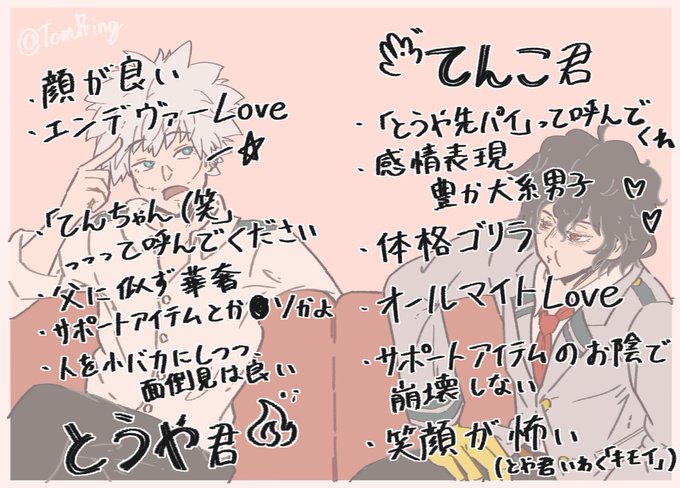 @TomPring
・顔が良い
・エンデヴァーLove
・「てんちゃん(笑)」
っっって呼んでください
・父に似ず華奢
・サポートアイテムとか●ソかよ
・人を小バカにしつつ、
面倒見は良い
とうや君
てんこ君
・「とうや先パイ」って呼んで
くれ
・感情表現
豊か犬系男子
・体格ゴリラ
・オールマイトLove
・サポートアイテムのお陰で
崩壊しない
・笑顔が怖い
(とや君いわく「キモイ」)